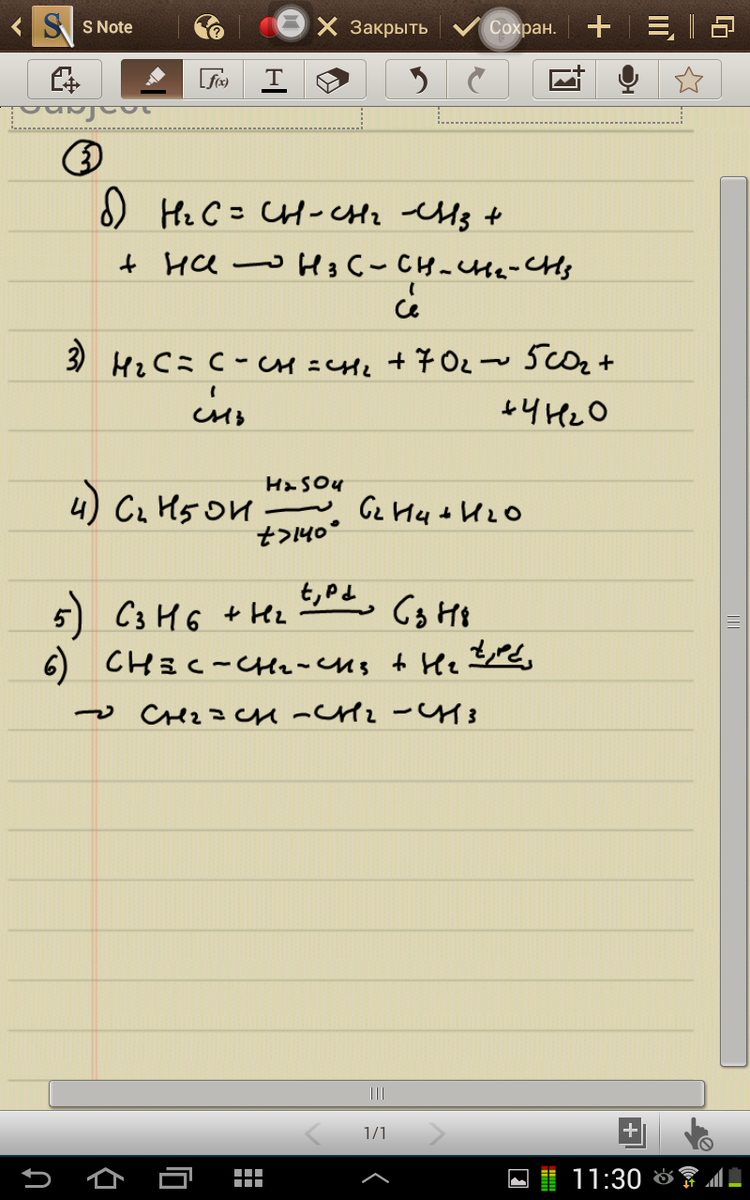 S Note
Закрыть
Сохран.
f(x)
T
Subject
3
б) H₂C = CH - CH₂ - CH₃ +
+ HCl → H₃C - CH - CH₂ - CH₃
Cl
3) H₂C = C - CH = CH₂ + 7O₂ → 5CO₂ +
CH₃ +4H₂O
H₂SO₄
4) C₂H₅OH → C₂H₄ + H₂O
t>140°
t, Pd
5) C₃H₆ + H₂ → C₃H₈
6) CH ≡ C - CH₂ - CH₃ + H₂ t, Pd →
→ CH₂ = CH - CH₂ - CH₃
1/1
11:30